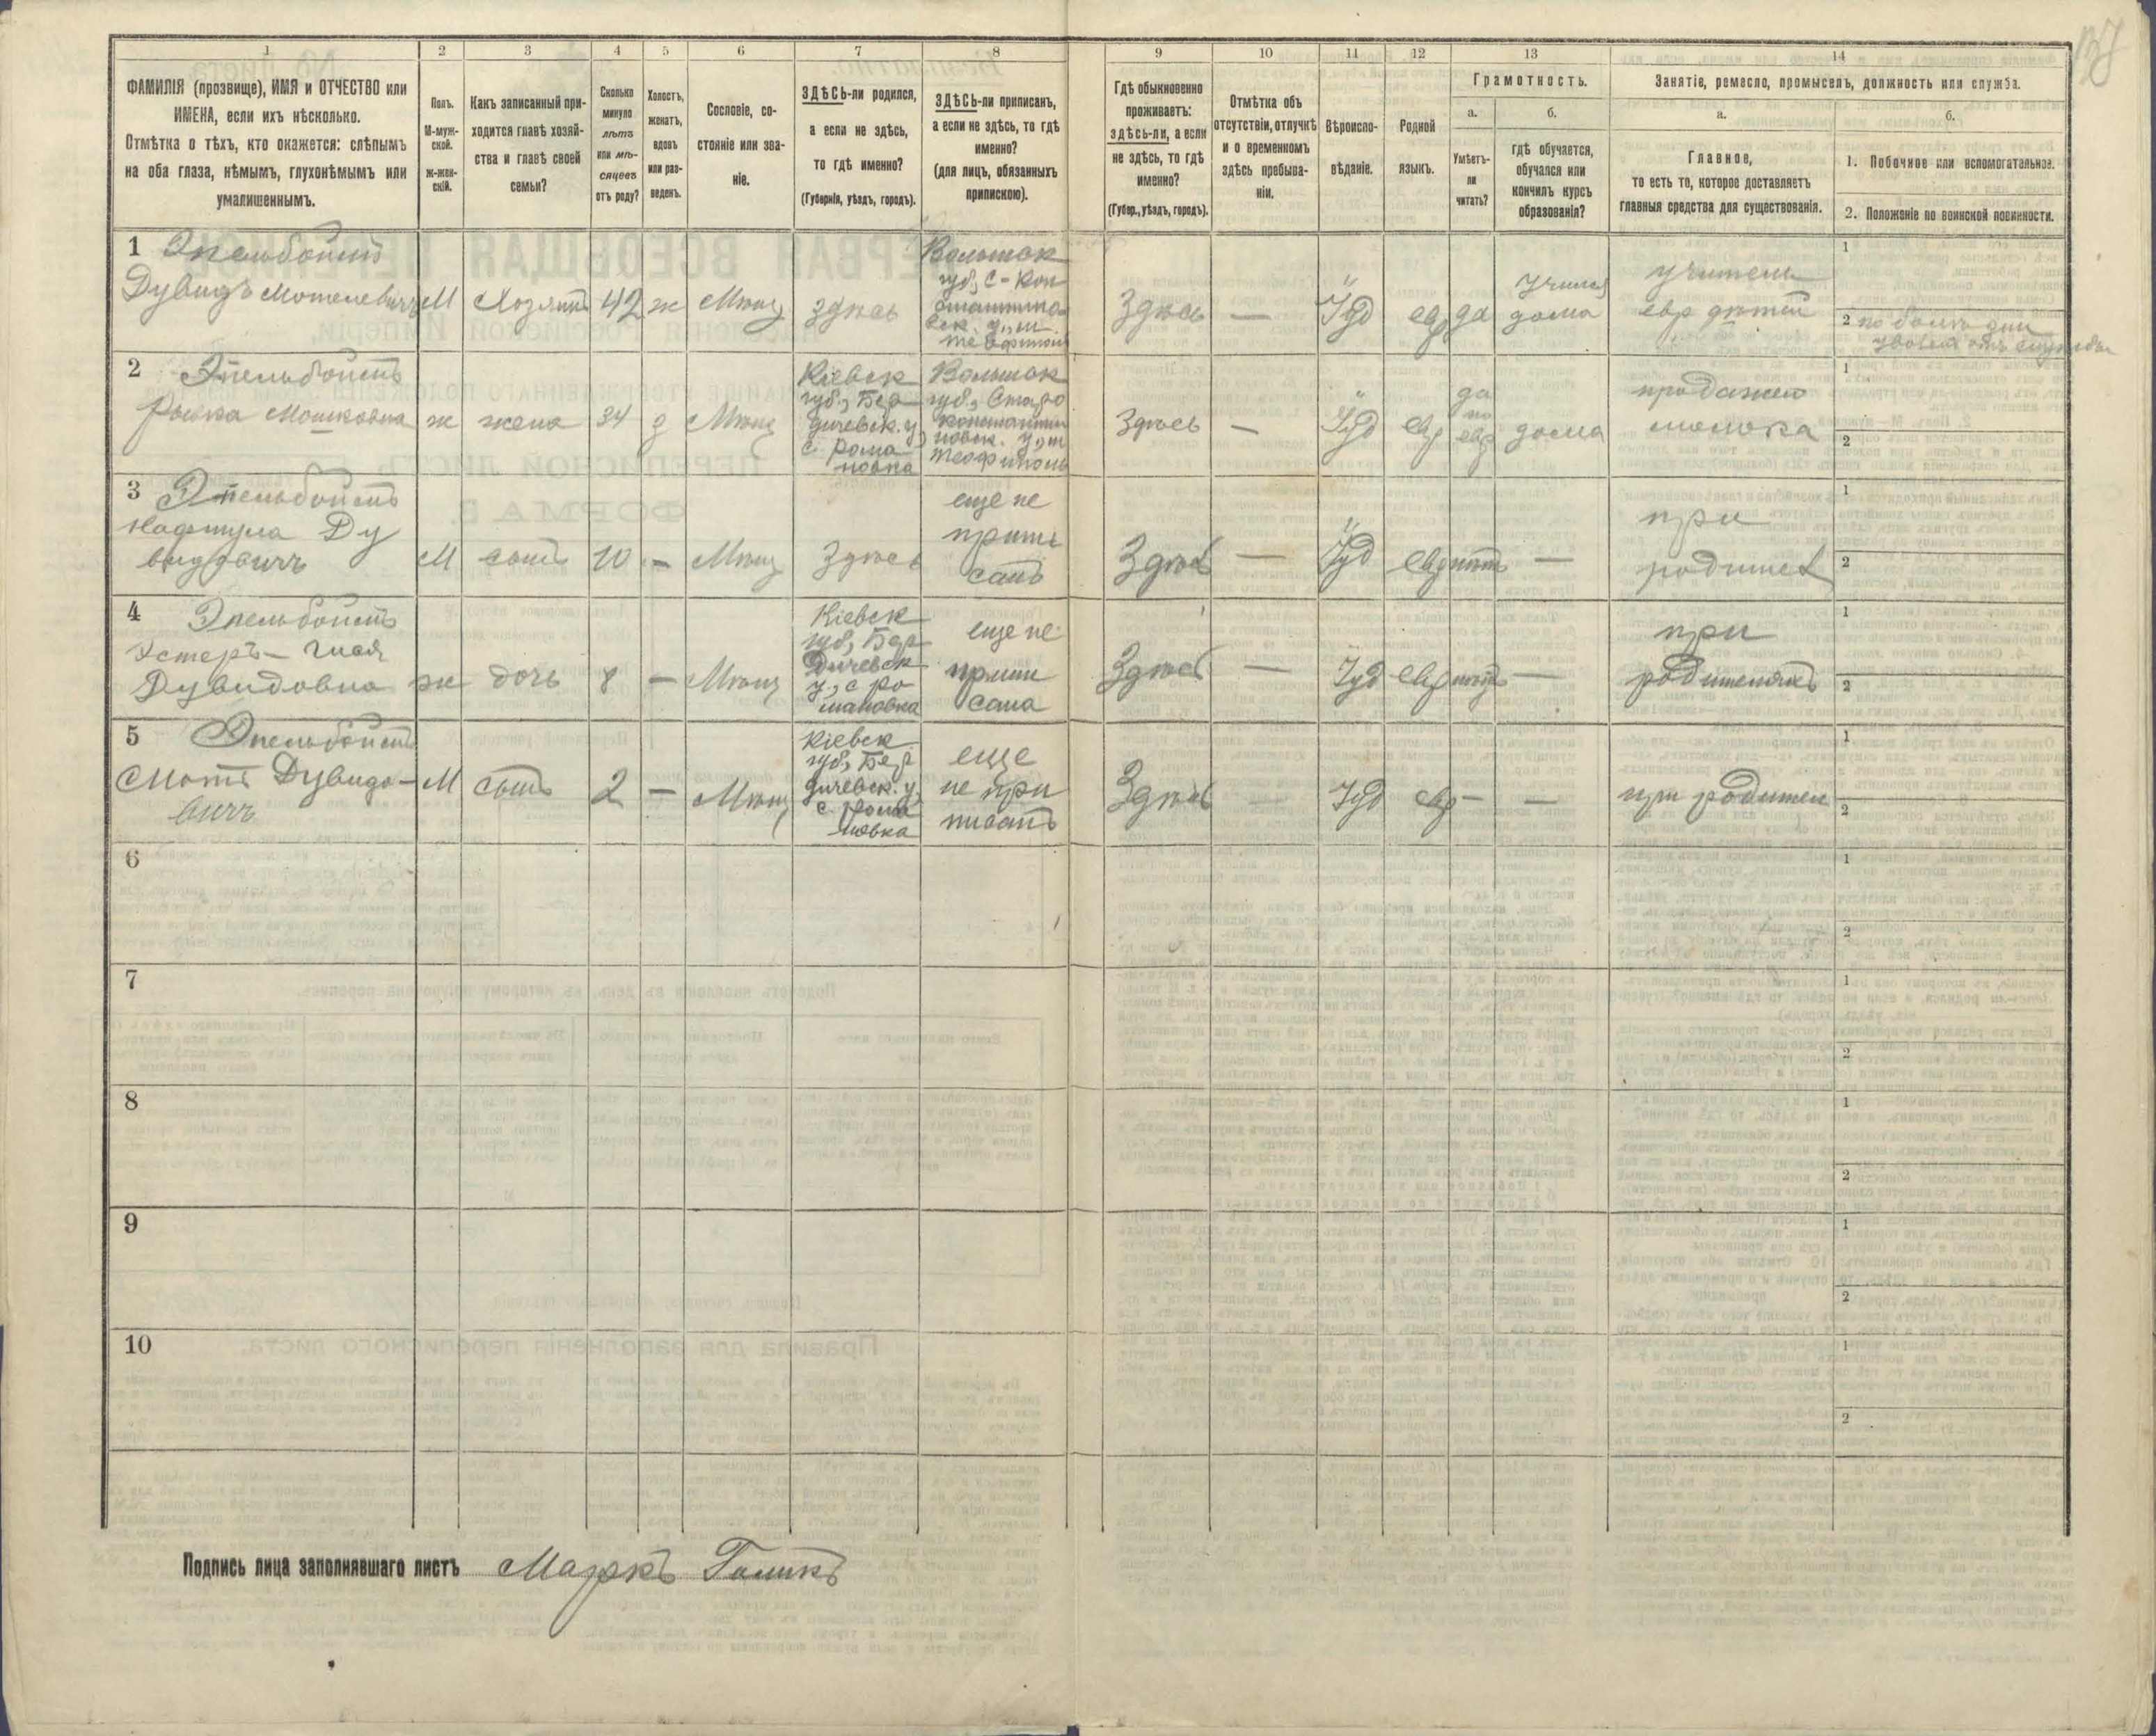 1 2 3 4 5 6 7 8 9 10 11 12 13 14
ФАМИЛІЯ (прозвище), ИМЯ и ОТЧЕСТВО или
ИМЕНА, если ихъ нѣсколько.
Отмѣтка о тѣхъ, кто окажется: слѣпымъ
на оба глаза, нѣмымъ, глухонѣмымъ или
умалишеннымъ.
Полъ.
М-муж-
ской.
ж-жен-
скій.
Какъ записанный при-
ходится главѣ хозяй-
ства и главѣ своей
семьи?
Сколько
минуло
лѣтъ
или мѣ-
сяцевъ
отъ роду?
Холостъ,
женатъ,
вдовъ
или раз-
веденъ.
Сословіе, со-
стояніе или зва-
ніе.
ЗДѢСЬ-ли родился,
а если не здѣсь,
то гдѣ именно?
(Губернія, уѣздъ, городъ).
ЗДѢСЬ-ли приписанъ,
а если не здѣсь, то гдѣ
именно?
(для лицъ, обязанныхъ
припискою).
Гдѣ обыкновенно
проживаетъ:
здѣсь-ли, а если
не здѣсь, то гдѣ
именно?
(Губер., уѣздъ, городъ).
Отмѣтка объ
отсутствіи, отлучкѣ
и о временномъ
здѣсь пребыва-
ніи.
Вѣроиспо-
вѣданіе.
Родной
языкъ.
Грамотность.
а.
Умѣетъ-
ли
читать?
б.
гдѣ обучается,
обучался или
кончилъ курсъ
образованія?
Занятіе, ремесло, промыселъ, должность или служба.
а.
Главное,
то есть то, которое доставляетъ
главныя средства для существованія.
б.
1. Побочное или вспомогательное.
2. Положеніе по воинской повинности.
1 Эпельбоймъ
Дувидъ Мотелевичъ
М
Хозяинъ
42
ж
Мѣщ
здѣсь
Волынск
губ., С-Кон
стантино
вск. у., м.
Теофиполь
Здѣсь
—
Іуд
евр
да
Учился
дома
учитель
евр дѣтей
1
2
2 Эпельбоймъ
Рывка Мошковна
ж
жена
34
з
Мѣщ
Кіевск
губ., Бер
дичевск. у,
с. Рома
новка
Волынск
губ., Старо
константи
новск. у., м
Теофиполь
Здѣсь
—
Іуд
евр
да
по
евр
дома
продажею
молока
1
2
3 Эпельбоймъ
Нафтула Ду
видовичъ
М
сынъ
10
—
Мѣщ
Здѣсь
еще не
припи
санъ
Здѣсь
—
Іуд
евр
нѣтъ
—
при
родител
1
2
4 Эпельбоймъ
Эстеръ-
Дувидовна
ж
дочь
8
—
Мѣщ
Кіевск
губ., Бер
дичевск
у., с Ро
мановка
еще не
припи
сана
Здѣсь
—
Іуд
евр
нѣтъ
—
при
родителяхъ
1
2
5 Эпельбоймъ
Мотя Дувидо-
вичъ
М
сынъ
2
—
Мѣщ
Кіевск
губ., Бер
дичевск. у,
с. Рома
новка
еще
не при
писанъ
Здѣсь
—
Іуд
евр
—
—
при родител
1
2
6
1
2
7
1
2
8
1
2
9
1
2
10
1
2
Подпись лица заполнявшаго листъ Маркъ Галикъ